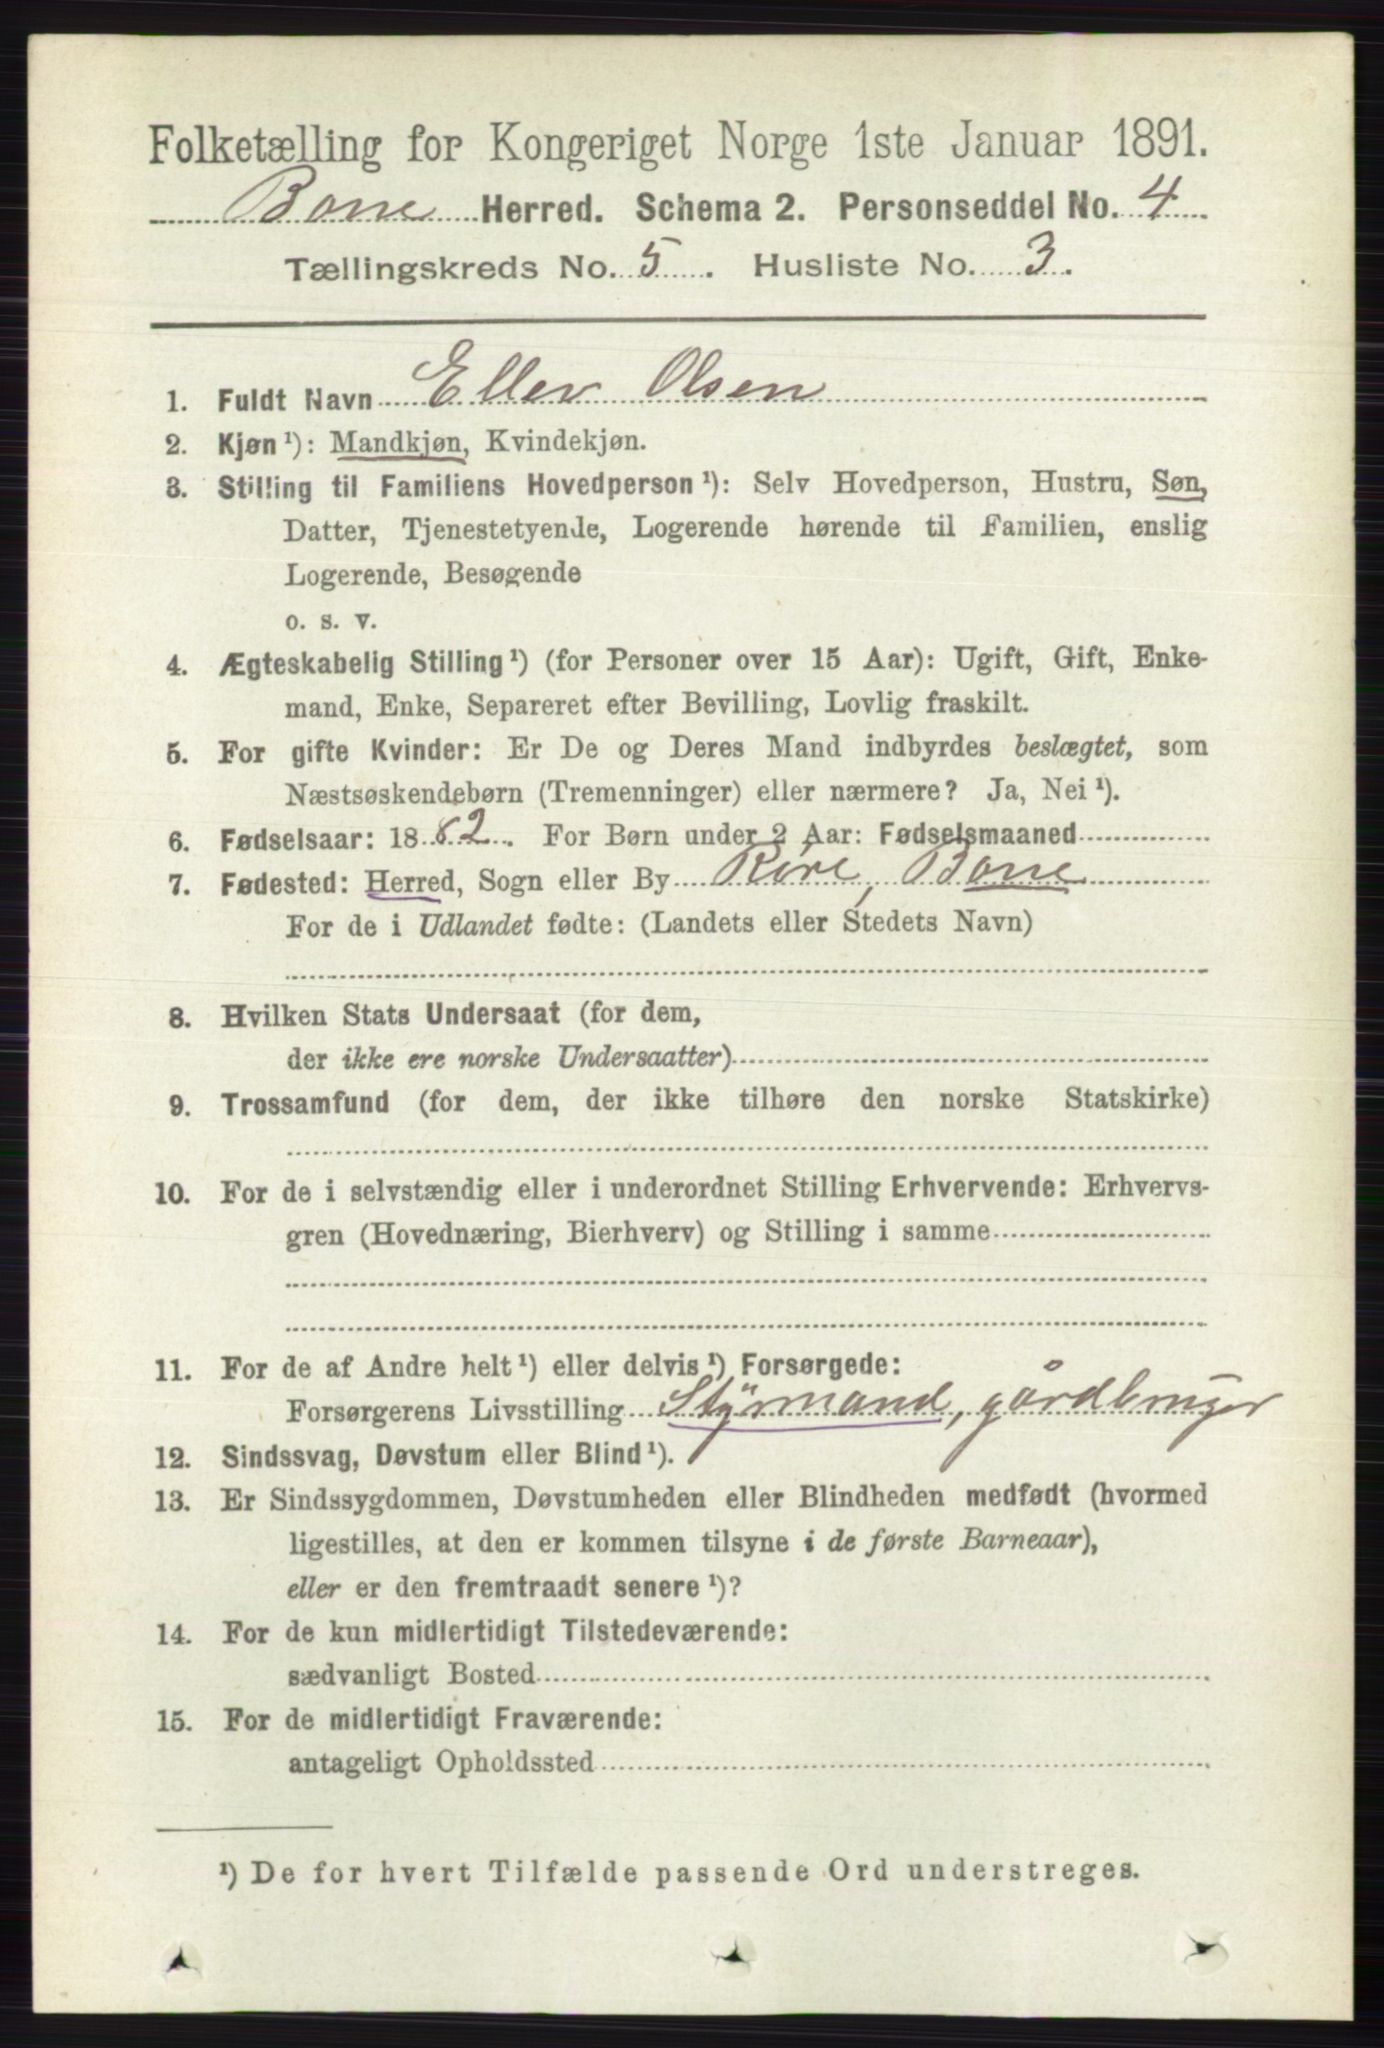 Folketælling for Kongeriget Norge 1ste Januar 1891.
Borre Herred. Schema 2. Personseddel No. 4
Tællingskreds No. 5. Husliste No. 3.
1. Fuldt Navn Ellev Olsen
2. Kjøn ¹): Mandkjøn, Kvindekjøn.
3. Stilling til Familiens Hovedperson ¹): Selv Hovedperson, Hustru, Søn,
Datter, Tjenestetyende, Logerende hørende til Familien, enslig
Logerende, Besøgende
o. s. v.
4. Ægteskabelig Stilling ¹) (for Personer over 15 Aar): Ugift, Gift, Enke-
mand, Enke, Separeret efter Bevilling, Lovlig fraskilt.
5. For gifte Kvinder: Er De og Deres Mand indbyrdes beslægtet, som
Næstsøskendebørn (Tremenninger) eller nærmere? Ja, Nei ¹).
6. Fødselsaar: 1882. For Børn under 2 Aar: Fødselsmaaned
7. Fødested: Herred, Sogn eller By Røre, Borre
For de i Udlandet fødte: (Landets eller Stedets Navn)
8. Hvilken Stats Undersaat (for dem,
der ikke ere norske Undersaatter)
9. Trossamfund (for dem, der ikke tilhøre den norske Statskirke)
10. For de i selvstændig eller i underordnet Stilling Erhvervende: Erhvervs-
gren (Hovednæring, Bierhverv) og Stilling i samme
11. For de af Andre helt ¹) eller delvis ¹) Forsørgede:
Forsørgerens Livsstilling Styrmand, gårdbruger
12. Sindssvag, Døvstum eller Blind ¹).
13. Er Sindssygdommen, Døvstumheden eller Blindheden medfødt (hvormed
ligestilles, at den er kommen tilsyne i de første Barneaar),
eller er den fremtraadt senere ¹)?
14. For de kun midlertidigt Tilstedeværende:
sædvanligt Bosted
15. For de midlertidigt Fraværende:
antageligt Opholdssted
¹) De for hvert Tilfælde passende Ord understreges.